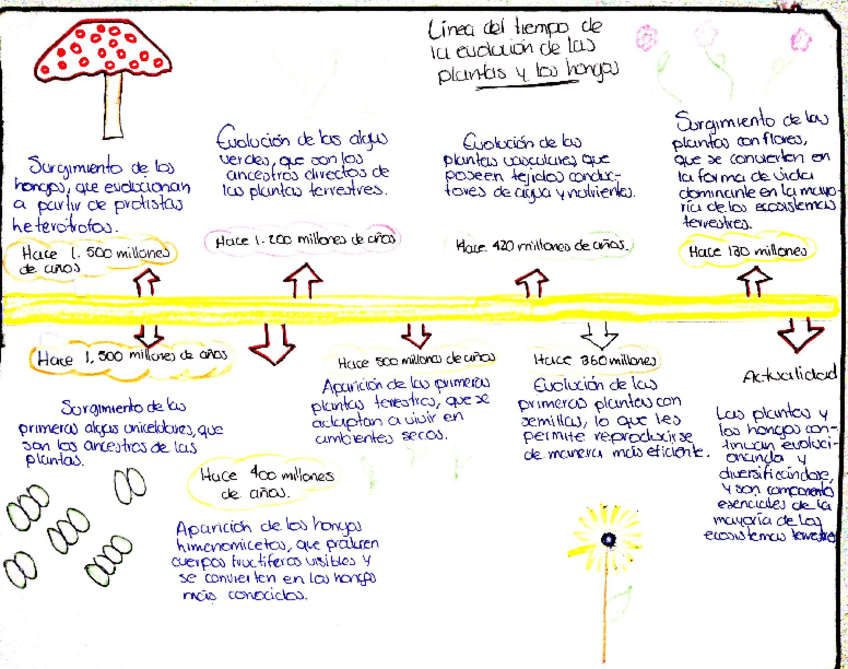 Línea del tiempo de
la evolución de las
plantas y los hongos
Surgimiento de los
hongos, que evolucionan
a partir de protistas
heterótrofos.
Hace 1.500 millones
de años
Evolución de las algas
verdes, que son los
ancestros directos de
las plantas terrestres.
Hace 1.200 millones de años
Evolución de las
plantas vasculares que
poseen tejidos conduc-
tores de agua y nutrientes.
Hace 420 millones de años.
Surgimiento de las
plantas con flores,
que se convierten en
la forma de vida
dominante en la mayo-
ría de los ecosistemas
terrestres.
Hace 130 millones
Hace 1,500 millones de años
Surgimiento de las
primeras algas unicelulares, que
son los ancestros de las
plantas.
Hace 400 millones
de años.
Aparición de los hongos
himenomicetos, que producen
cuerpos fructíferos visibles y
se convierten en los hongos
más conocidos.
Hace 500 millones de años
Aparición de las primeras
plantas terrestres, que se
adaptan a vivir en
ambientes secos.
Hace 360 millones
Evolución de las
primeras plantas con
semillas, lo que les
permite reproducirse
de manera más eficiente.
Actualidad
Las plantas y
los hongos con-
tinuan evoluci-
onando y
diversificándose,
y son componentes
esenciales de la
mayoría de los
ecosistemas terrestre